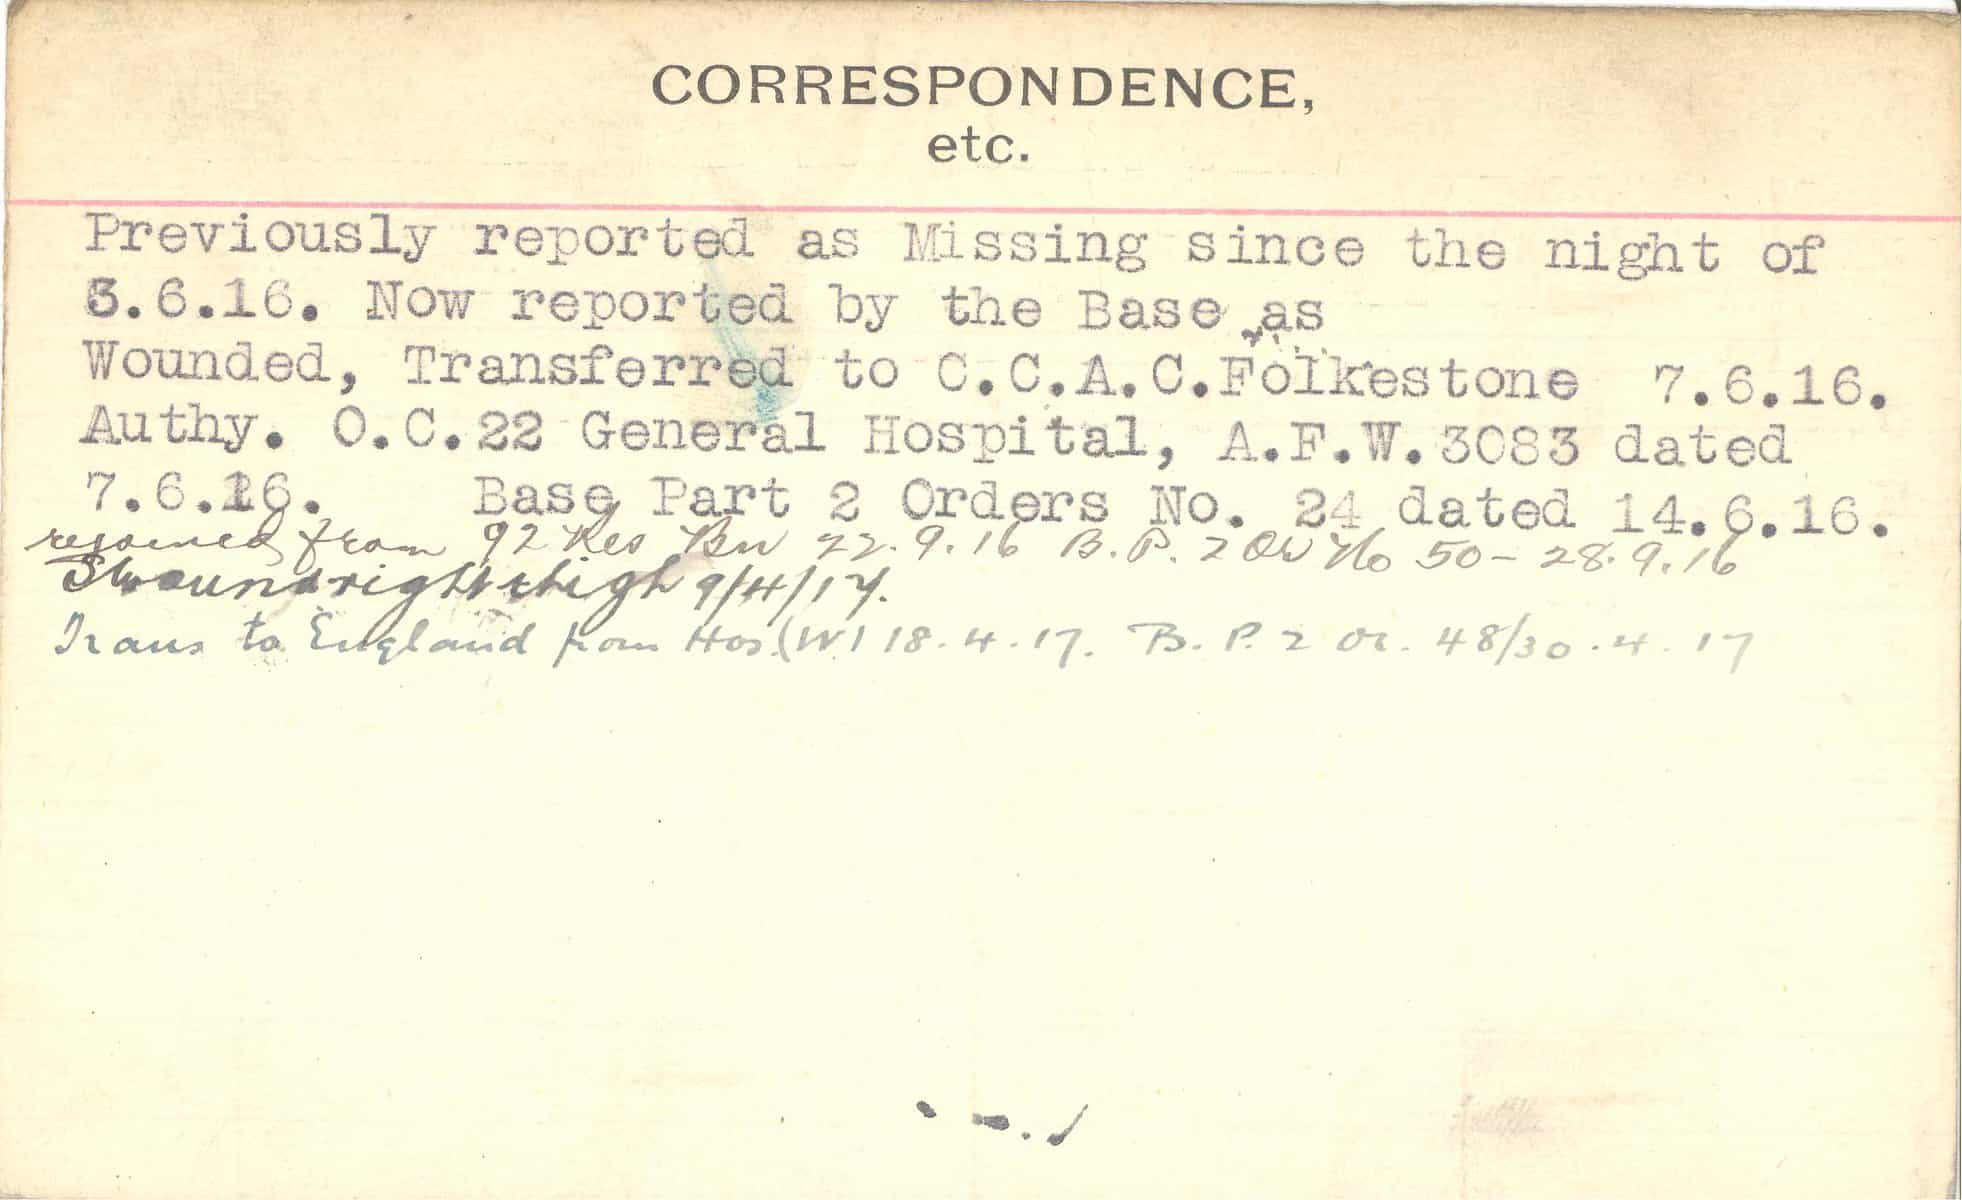 CORRESPONDENCE,
etc.
Previously reported as Missing since the night of
3.6.16. Now reported by the Base as
Wounded, Transferred to C.C.A.C.Folkestone 7.6.16.
Authy. O.C.22 General Hospital, A.F.W.3083 dated
7.6.16. Base Part 2 Orders No. 24 dated 14.6.16.
rejoined from 92 Res Bn 22.9.16 B.P.2 Or No 50 - 28.9.16
S wound right thigh 9/4/17.
Trans to England from Hos. (W) 18.4.17. B.P.2 Or. 48/30.4.17